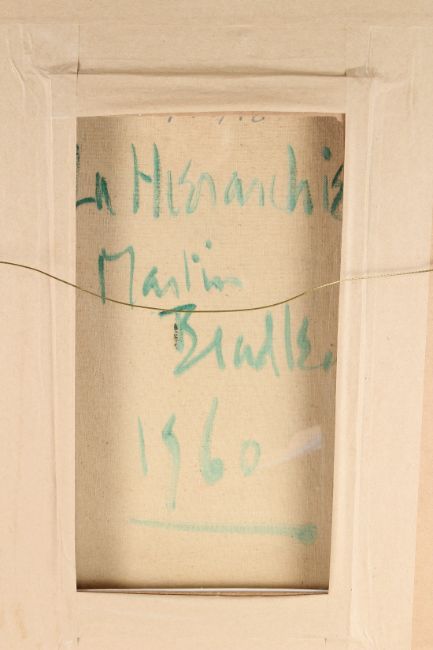 La Hierarchie
Martin
Bradley
1960